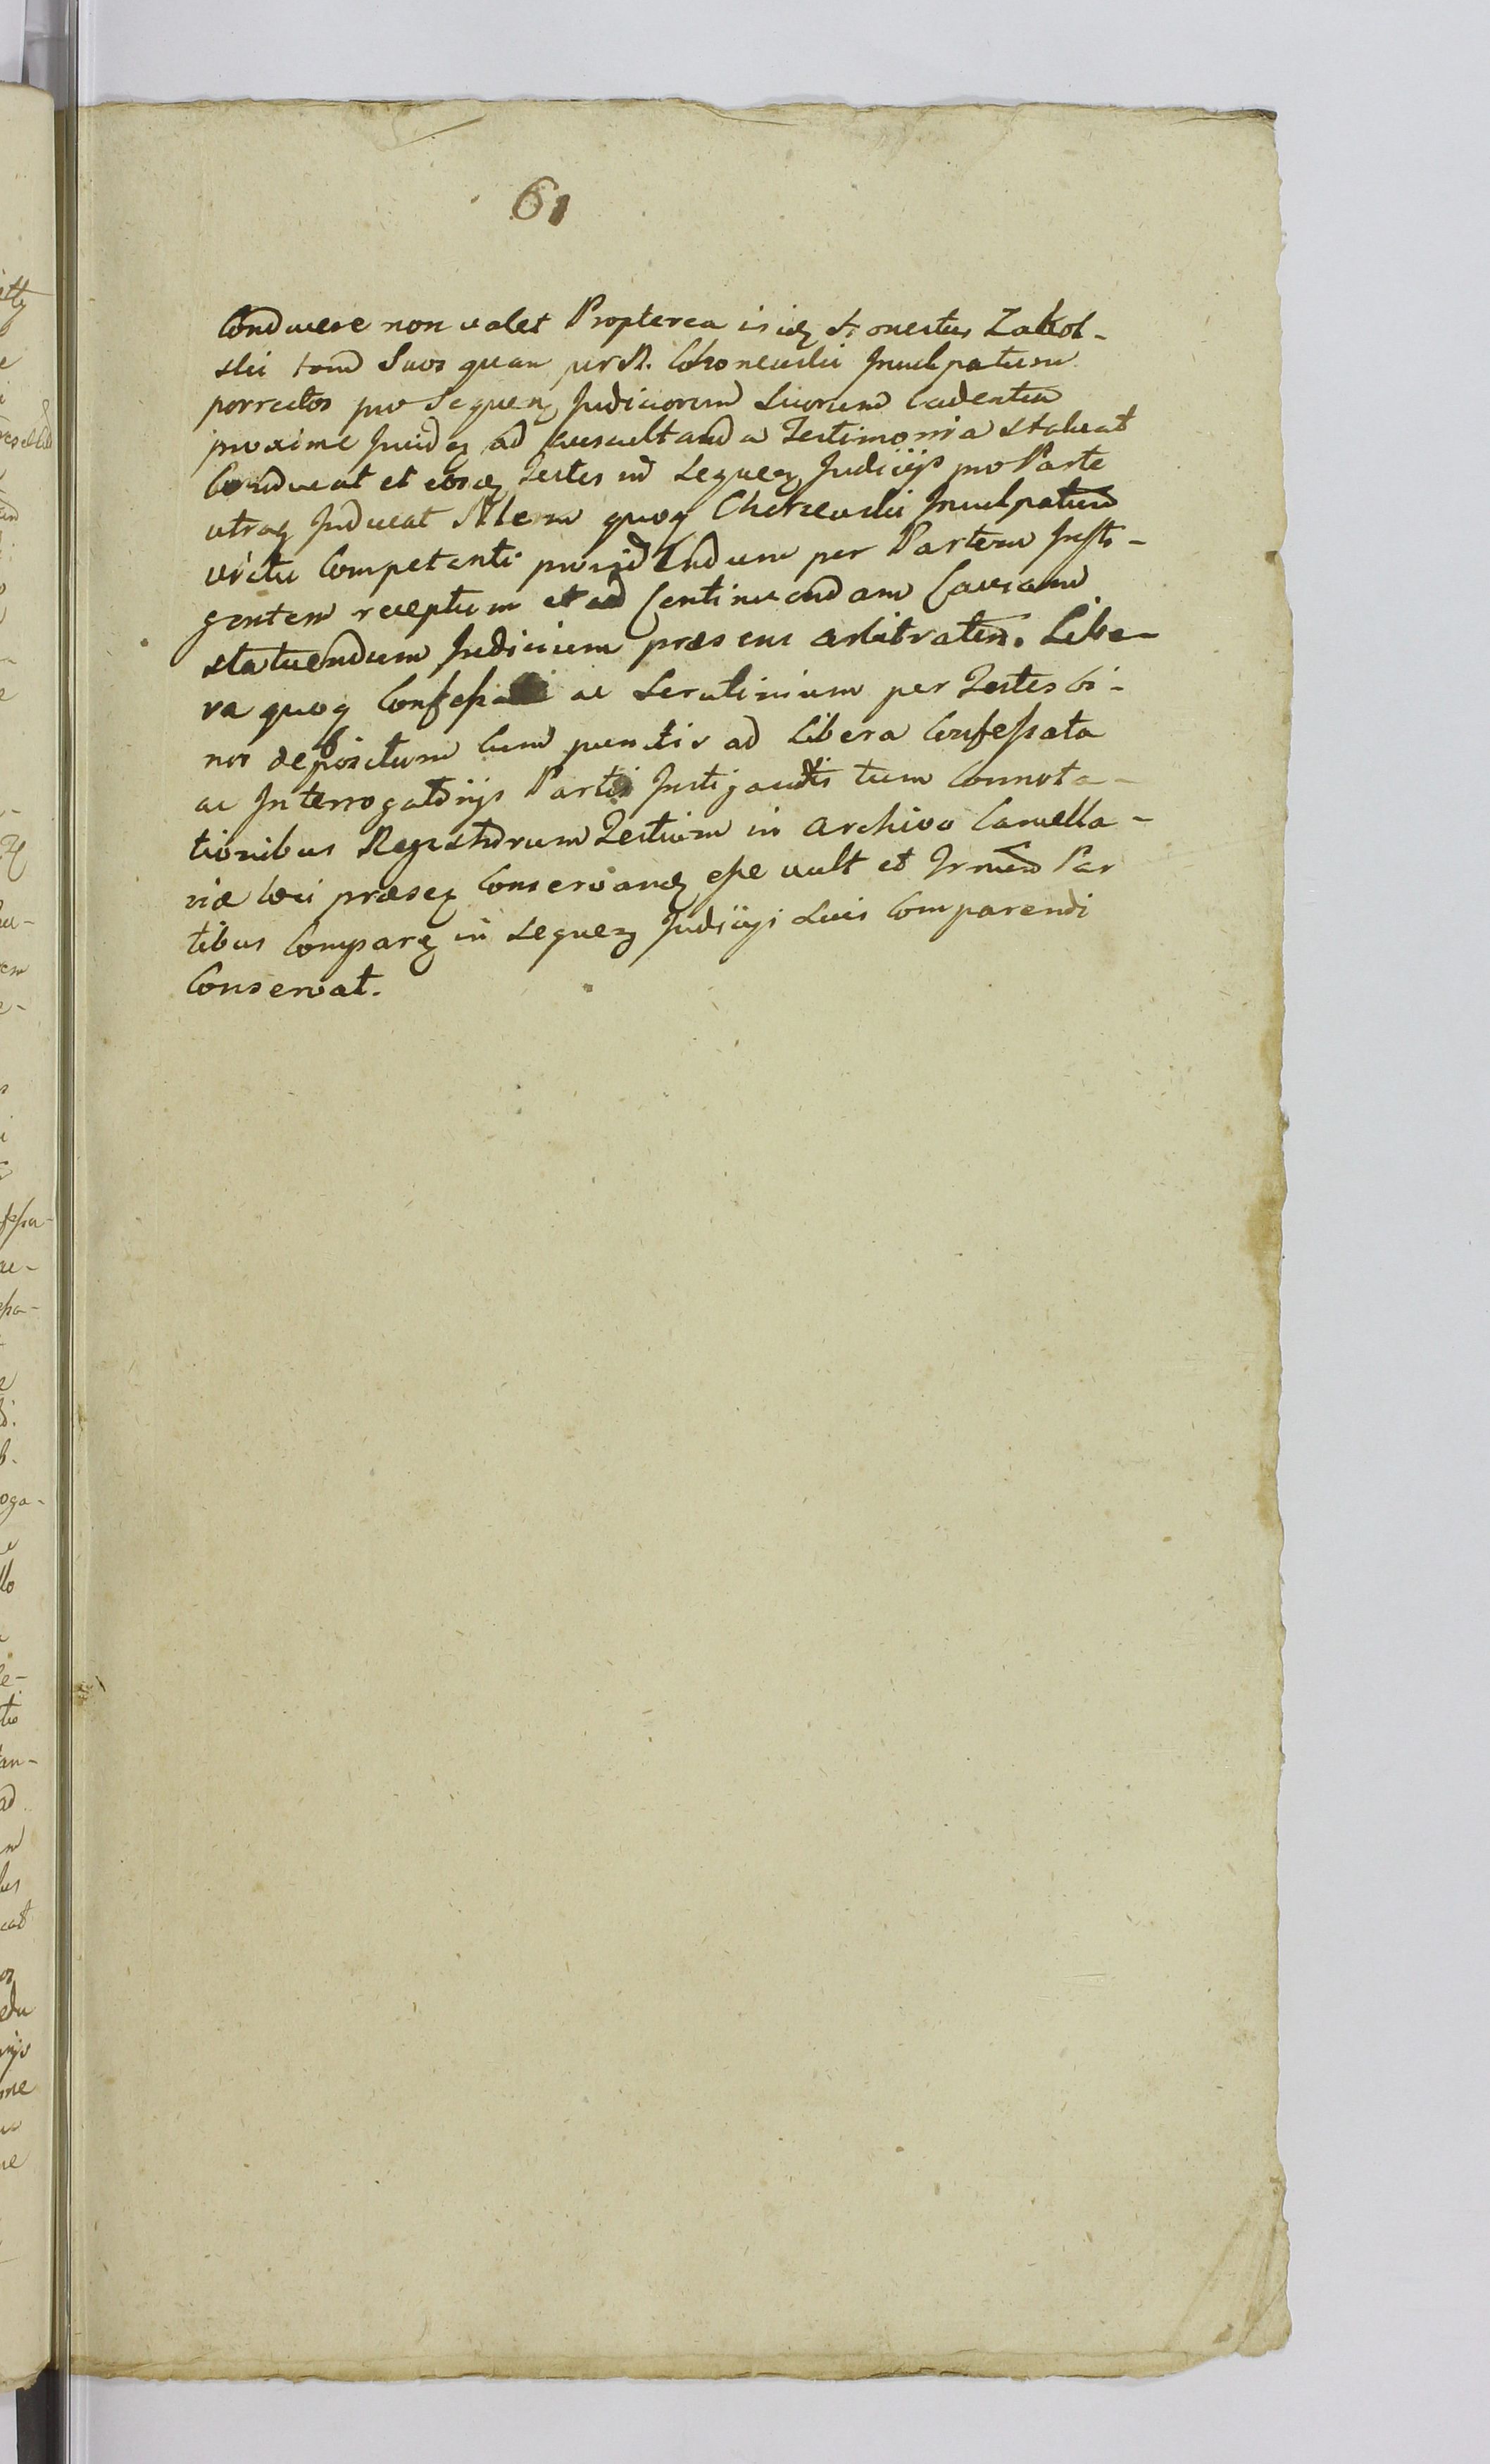 61
Conducere non valet Propterea isidq honestus Zakol-
ski tam Suos quam per St. Chrzonewski Inculpatum
porrectos pro Sequenq Judiciorum Suorum Cadentia
proxime Incidq ad auscultanda Testimonia statuat
Conducat et eosdq Testes in Sequenq Judicijs pro Parte
utraq Inducat quoq Inculpatum
victu Competenti providendum per Partem Insti-
gantem receptum et ad Continuendam Causam
statuendum Judicium præsens arbitratur. Libe-
ra quoq Confessata ac Scrutinium per Testes bi-
nos depositum Cum punctis ad Libera Confessata
ac Interrogatorijs Partis Instigantis tum Connota-
tionibus Registrorum Testium in Archivo Cancella-
riæ loci præseq Conservandq esse vult et Irmum Par
tibus Comparq in Sequenq Judicijs Suis Comparendi
Conservat.